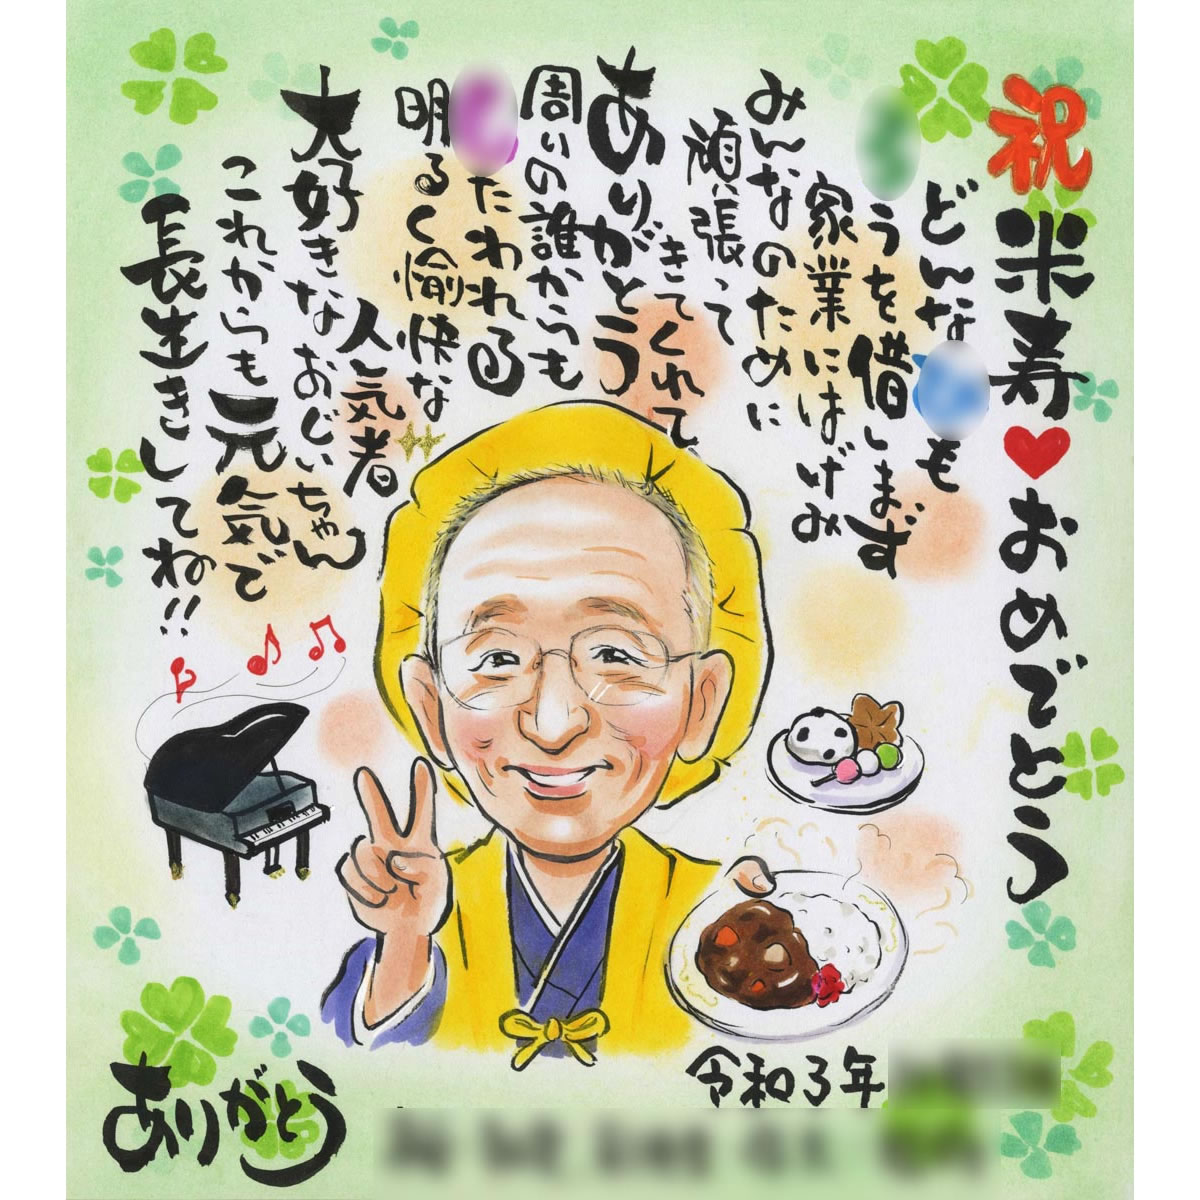 祝米寿♥おめでとう
どんな も
うを借しまず
家業にはげみ
みんなのために
頑張って
きてくれて
ありがとう
周りの誰からも
たわれる
明るく愉快な
人気者
大好きなおじいちゃん
これからも元気で
長生きしてね!!
令和3年
ありがとう